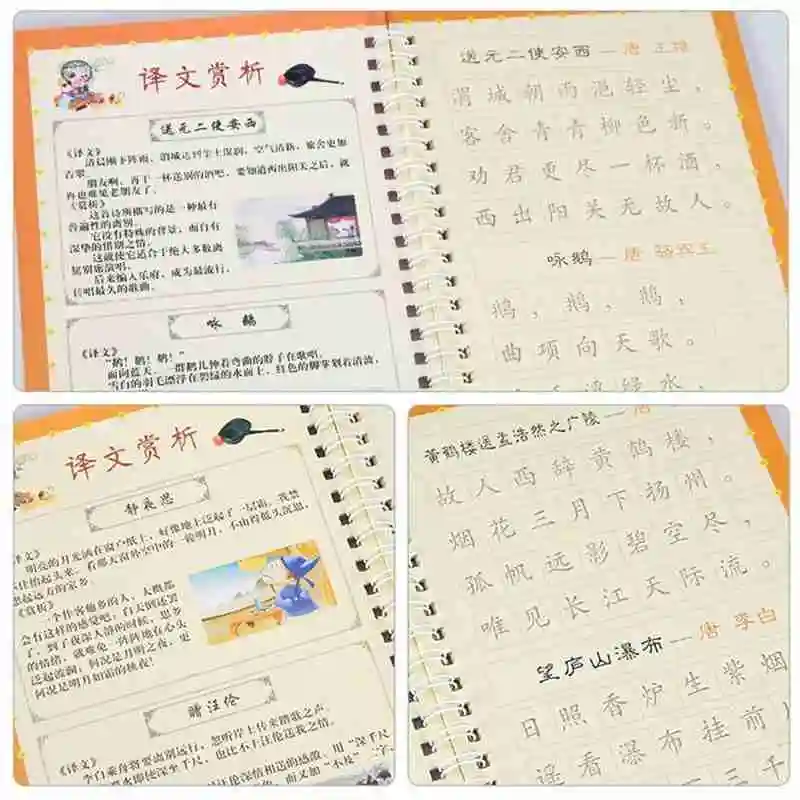 译文赏析
送元二使安西
《译文》
清晨刚下阵雨,渭城达到尘土湿润,空气清新,旅舍更加
青翠。
朋友啊,再干一杯送别的酒吧,要知道西出阳关之后,就
再也难见老朋友了。
《赏析》
这首诗所描写的是一种最有
普遍性的离别。
它没有特殊的背景,而自有
深挚的惜别之情。
这就使它适合于绝大多数离
筵别席演唱。
后来编入乐府,成为最流行,
传唱最久的歌曲。
咏 鹅
《译文》
“鹅!鹅!鹅!”
面向蓝天,一群鹅儿伸着弯曲的脖子在歌唱。
雪白的羽毛漂浮在碧绿的水面上,红色的脚掌划着清波,
送元二使安西—唐 王维
渭城朝雨浥轻尘,
客舍青青柳色折。
劝君更尽一杯酒,
西出阳关无故人。
咏鹅—唐 骆宾王
鹅,鹅,鹅,
曲项向天歌。
绿水,
译文赏析
静夜思
《译文》
明亮的月光洒在窗户纸上,好像地上泛起了一层霜。我禁
不住抬起头来,看那天窗外空中的一轮明月,不由得低头沉思,
想起远方的家乡。
《赏析》
一个作客他乡的人,大概都
会有这样的感觉吧:白天倒还罢
了,到了夜深人静的时候,思乡
的情绪,就难免一阵阵地在心头
泛起波澜;何况是月明之夜,更
何况是明月如霜的秋夜!
赠汪伦
《译文》
李白乘舟将要离别远行,忽听岸上传来踏歌之声。
黄鹤楼送孟浩然之广陵—唐
故人西辞黄鹤楼,
烟花三月下扬州。
孤帆远影碧空尽,
唯见长江天际流。
望庐山瀑布—唐 李白
日照香炉生紫烟
遥看瀑布挂前
三千